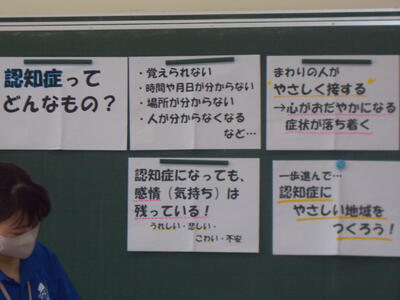 認知症って
どんなもの？
・覚えられない
・時間や月日が分からない
・場所が分からない
・人が分からなくなる
など…
まわりの人が
やさしく接する
→心がおだやかになる
症状が落ち着く
認知症になっても、
感情（気持ち）は
残っている！
うれしい・悲しい・
こわい・不安
一歩進んで…
認知症に
やさしい地域を
つくろう！